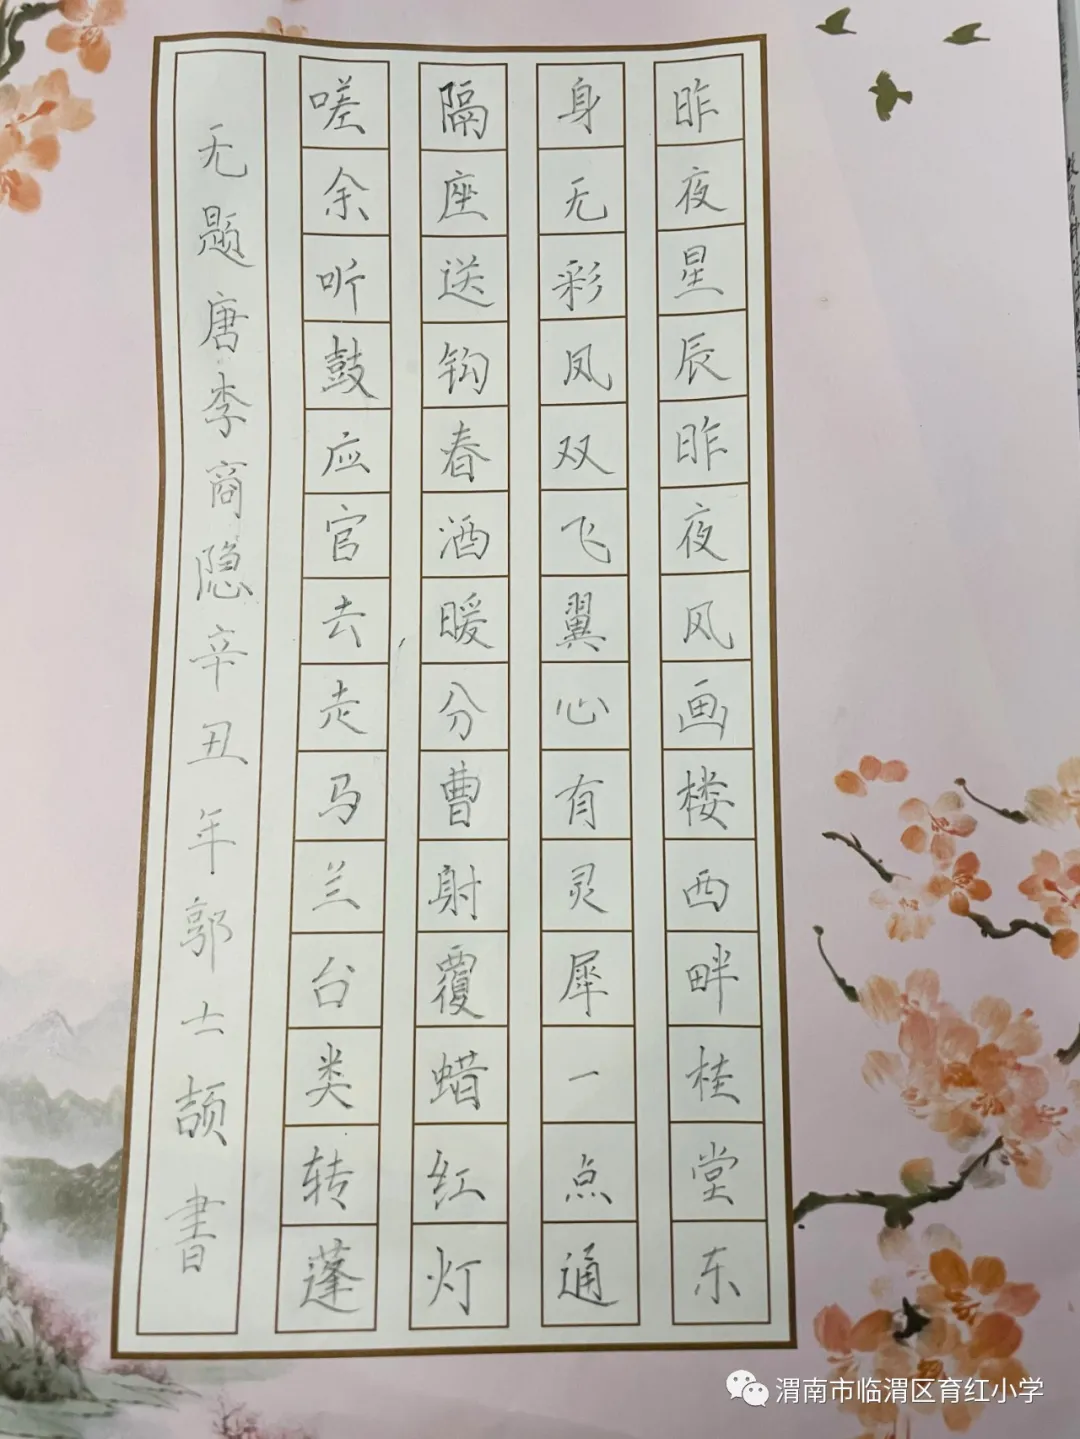 昨夜星辰昨夜风画楼西畔桂堂东
身无彩凤双飞翼心有灵犀一点通
隔座送钩春酒暖分曹射覆蜡红灯
嗟余听鼓应官去走马兰台类转蓬
无题唐李商隐辛丑年郭士颉書
渭南市临渭区育红小学